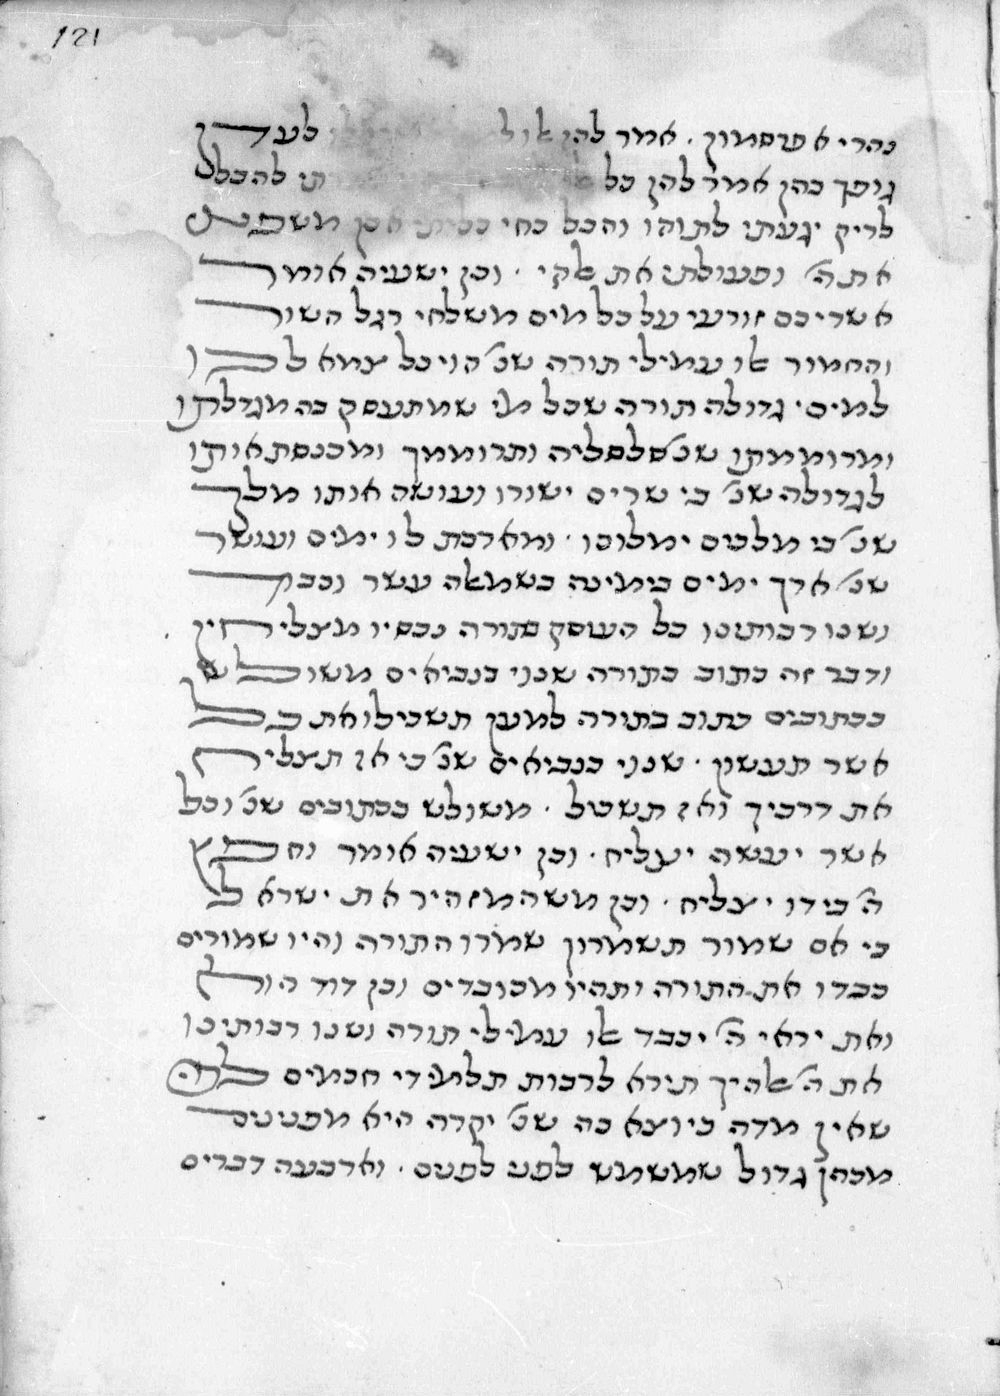 121
נהרי אפרסמון. אמר להן אילו לעדין
גופך כהן אמר להן כל להבל
לריק יגעתי לתוהו והבל כחי כליתי אכן משפטי
את ה' ופעולתי את אלקי. וכן ישעיה אומר
אשריכם זורעי על כל מים משלחי רגל השור
והחמור אלו עמילי תורה שנ' הוי כל צמא לכו
למים. גדולה תורה שכל מי שמתעסק בה מגדלתו
ומרוממתו שנ' סלסליה ותרוממך ומכנסת אותו
לגדולה שנ' בי שרים ישורו ועושה אותו מלך
שנ' בי מלכים ימלוכו. ומארכת לו ימים ועושר
שנ' ארך ימים בימינה בשמאלה עשר וכבוד
נשנו רבותינו כל העוסק בתורה נכסיו מצליחין
ודבר זה כתוב בתורה שנוי בנביאים משולש
בכתובים כתוב בתורה למען תשכילו את כל
אשר תעשון. שנוי בנביאים שנ' כי אז תצליח
את דרכיך ואז תשכיל. משולש בכתובים שנ' וכל
אשר יעשה יצליח. וכן ישעיה אומר וחפץ
ה' בידו יצליח. וכן משה מזהיר את ישראל
כי אם שמור תשמרון שמרו התורה והיו שמורים
כבדו את התורה ותהיו מכובדים וכן דוד הולך
ואת יראי ה' יכבד אלו עמילי תורה נשנו רבותינו
את ה' אלהיך תירא לרבות תלמידי חכמים
שאין מדה כיוצא בה שנ' יקרה היא מפנינים
מכהן גדול שמשמש לפני לפנים. וארבעה דברים